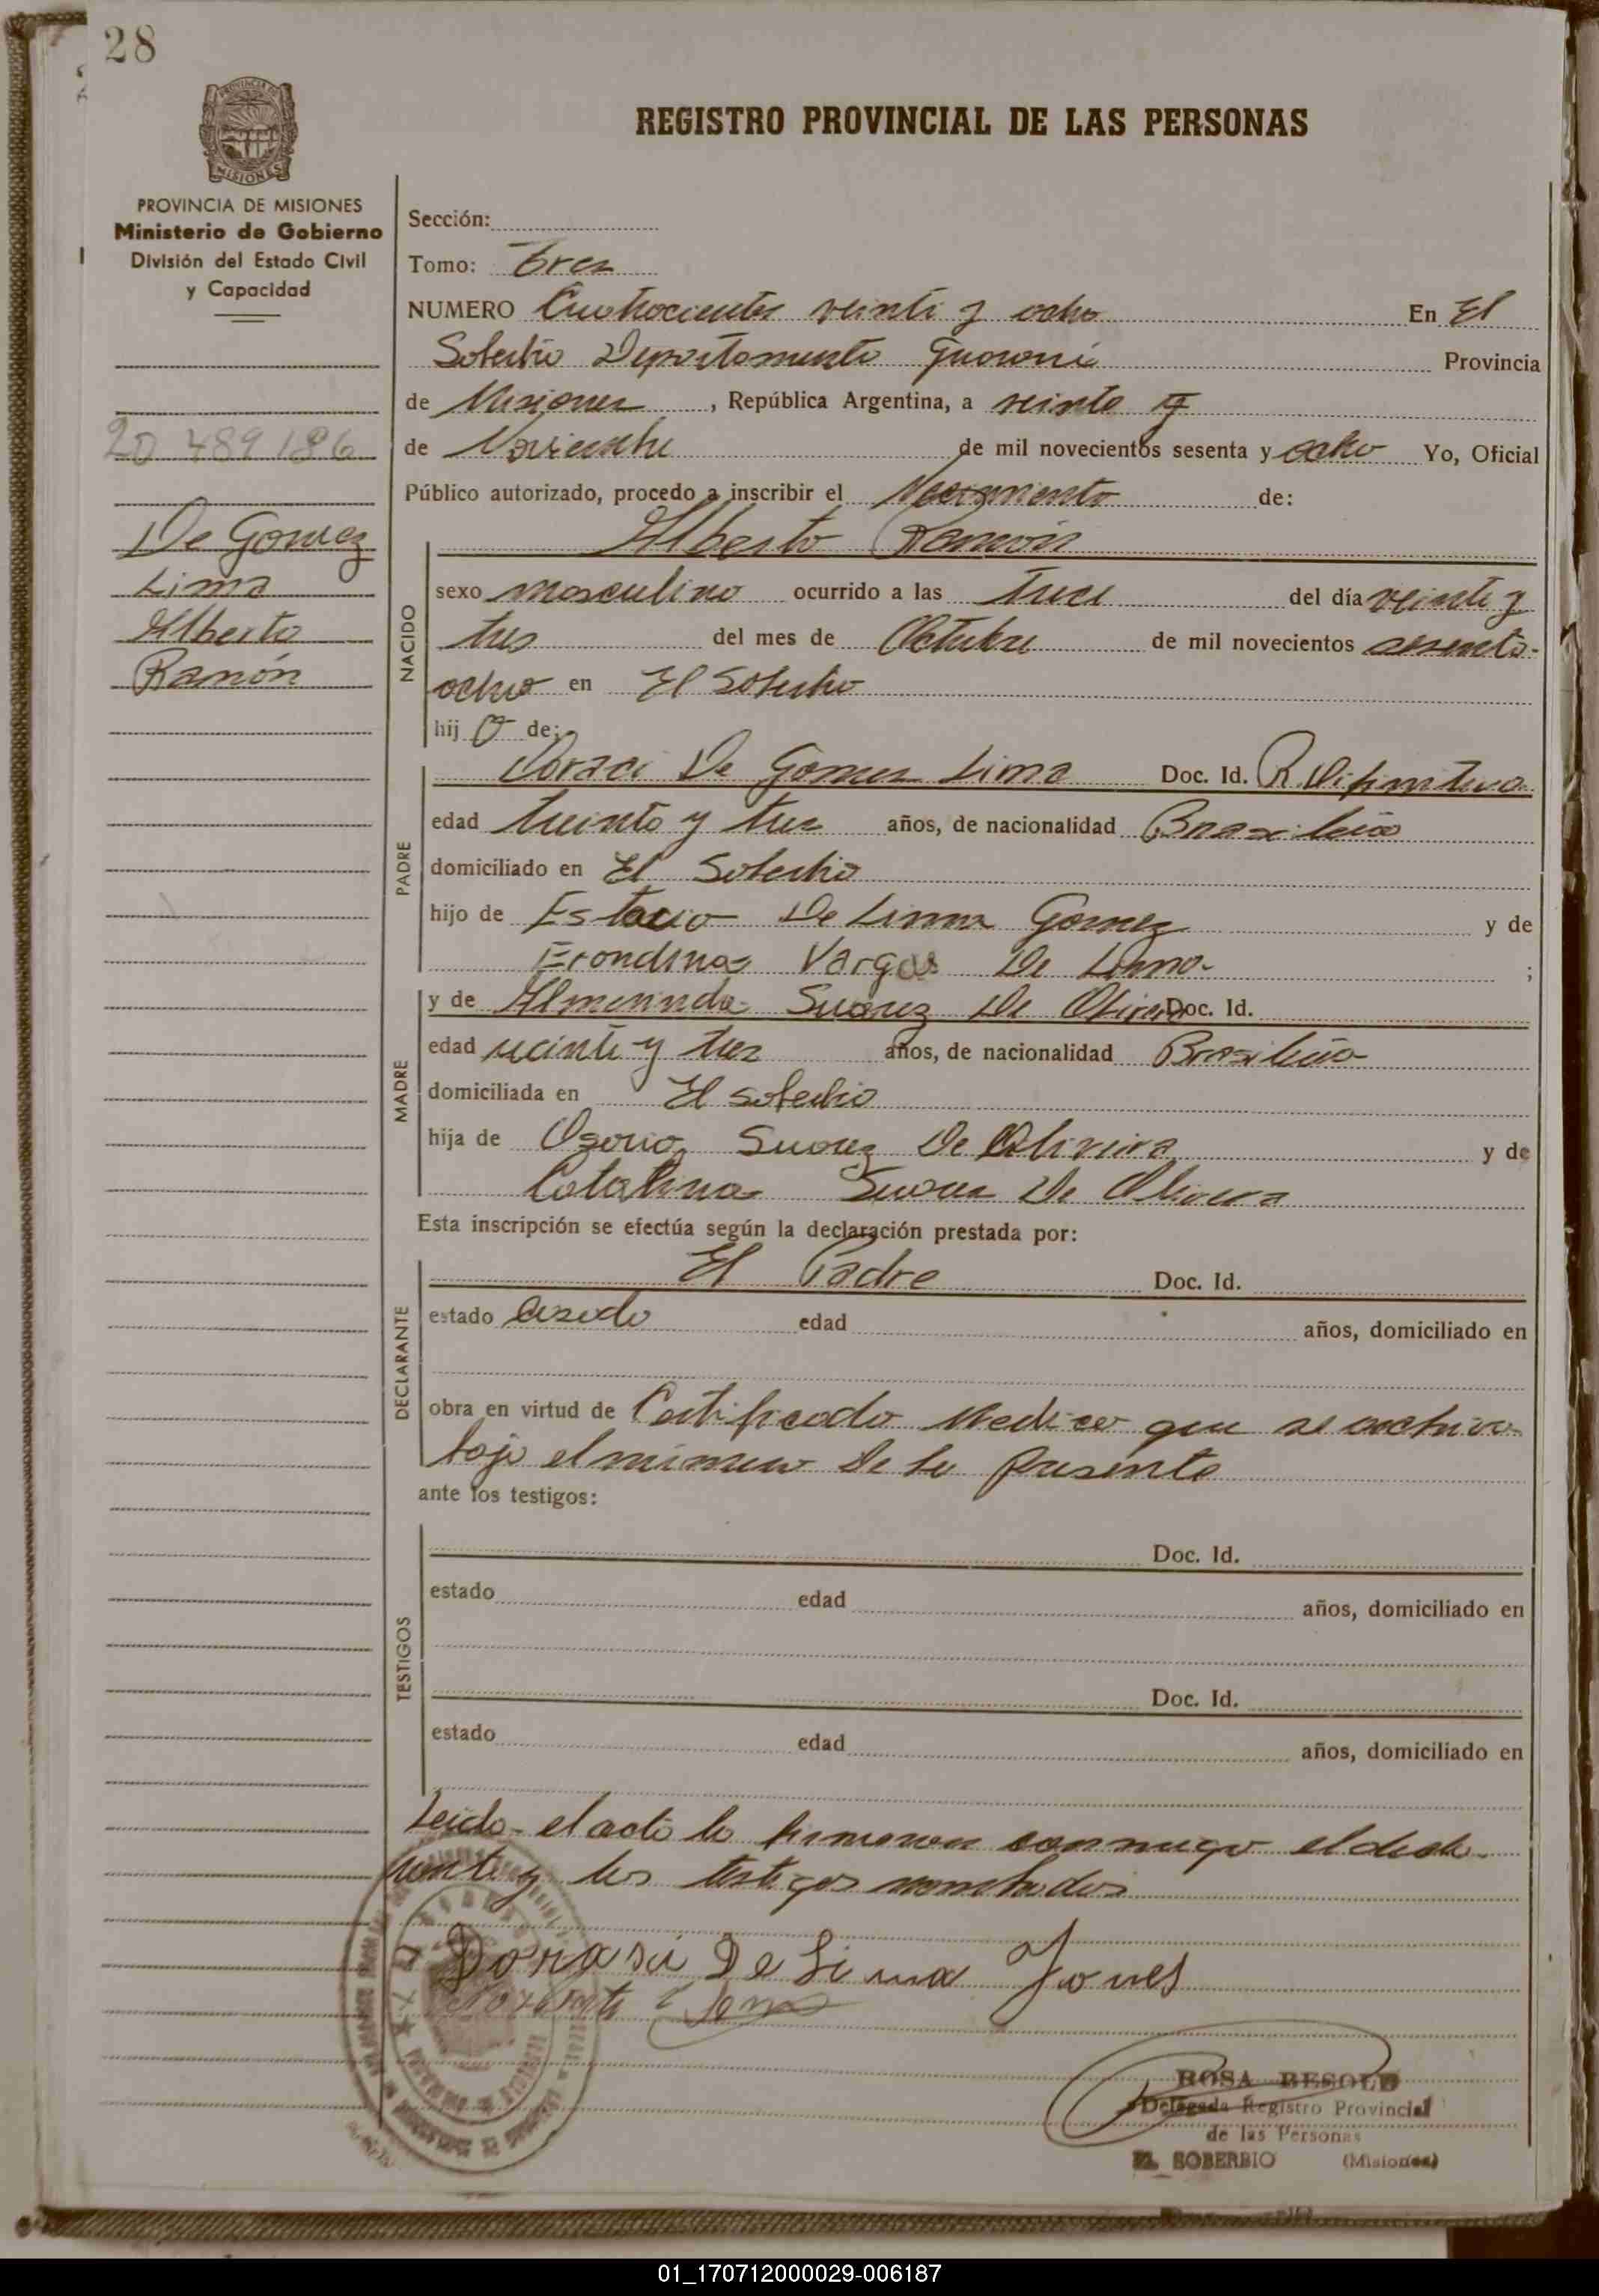 28
PROVINCIA DE MISIONES
REGISTRO PROVINCIAL DE LAS PERSONAS
PROVINCIA DE MISIONES
Ministerio de Gobierno
División del Estado Civil
y Capacidad
20 489 186
De Gomez
Lima
Alberto
Ramón
Sección:
Tomo: Tres
NUMERO Cuatrocientos veinti y ocho En El
Soberbio Departamento Guarani Provincia
de Misiones, República Argentina, a veinte
de Noviembre de mil novecientos sesenta y ocho Yo, Oficial
Público autorizado, procedo a inscribir el Nacimiento de:
Alberto Ramón
NACIDO
sexo masculino ocurrido a las trece del día veinti y
tres del mes de Octubre de mil novecientos sesenta
ocho en El Soberbio
hij o de:
PADRE
Doraci De Gomez Lima Doc. Id. R. Difinitiva
edad treinta y tres años, de nacionalidad Brasileña
domiciliado en El Soberbio
hijo de Estacio De Lima Gomez y de
Erondina Vargas De Lima ;
MADRE
y de Almerinda Suarez De Doc. Id.
edad veinti y tres años, de nacionalidad Brasileña
domiciliada en El Soberbio
hija de Osorio Suarez De Oliveira y de
Catalina Suarez De Oliveira
Esta inscripción se efectúa según la declaración prestada por:
DECLARANTE
El Padre Doc. Id.
estado casado edad años, domiciliado en
obra en virtud de Certificado Medico que se archiva
bajo el número De la presente
ante los testigos:
TESTIGOS
Doc. Id.
estado edad años, domiciliado en
Doc. Id.
estado edad años, domiciliado en
Leida el acta la firmaron conmigo el decla-
rante y los testigos nombrados
Dorasi De Lima Jomes
ROSA BESOLD
Delegada Registro Provincial
de las Personas
EL SOBERBIO (Misiones)
01_170712000029-006187